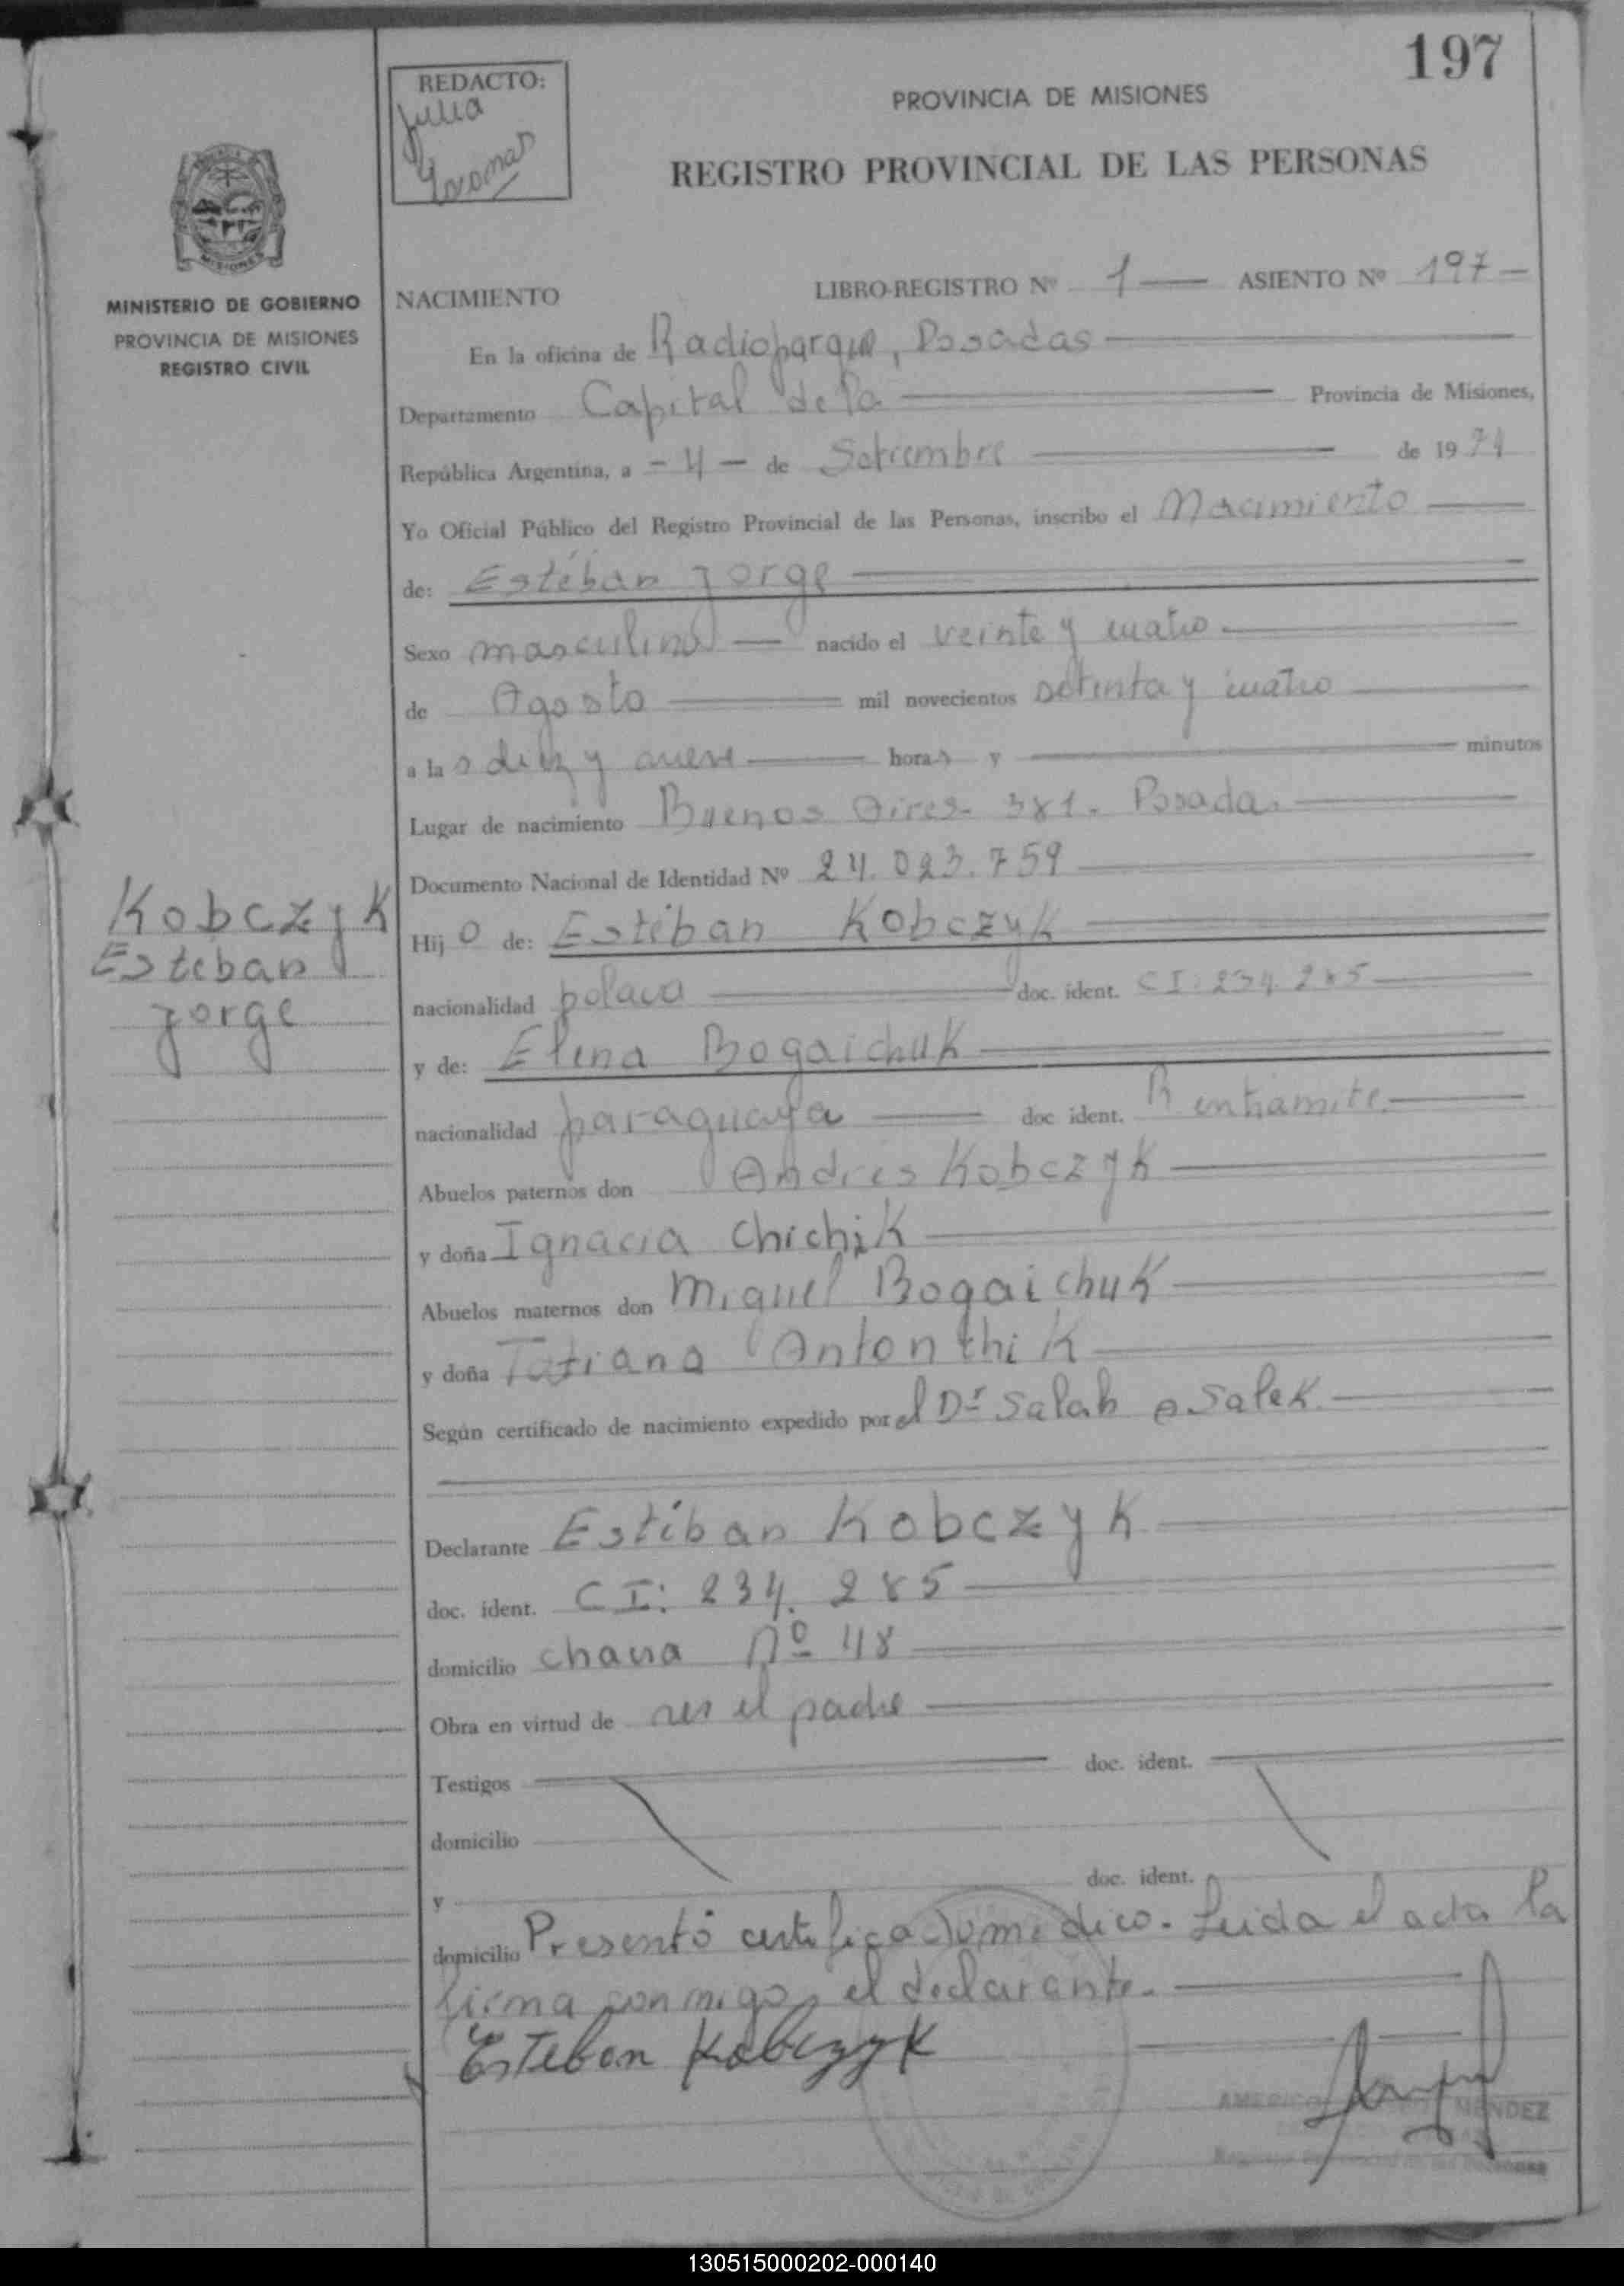 197
REDACTO:
Julia
PROVINCIA DE MISIONES
REGISTRO PROVINCIAL DE LAS PERSONAS
MISIONES
MINISTERIO DE GOBIERNO
PROVINCIA DE MISIONES
REGISTRO CIVIL
NACIMIENTO LIBRO-REGISTRO Nº 1 — ASIENTO Nº 197 —
En la oficina de Radioparque, Posadas
Departamento Capital de la Provincia de Misiones,
República Argentina, a - 4 - de Setiembre de 1974
Yo Oficial Público del Registro Provincial de las Personas, inscribo el Nacimiento
de: Estéban Jorge
Sexo masculino — nacido el veinte y cuatro
de Agosto mil novecientos setenta y cuatro
a las diez y nueve horas y minutos
Lugar de nacimiento Buenos Aires- 381- Posadas
Documento Nacional de Identidad Nº 24.023.759
Hijo de: Estéban Kobczyk
nacionalidad polaca doc. ident. CI: 234.285
y de: Elena Bogaichuk
nacionalidad paraguaya doc ident. en tramite
Abuelos paternos don Andres Kobczyk
y doña Ignacia Chichik
Abuelos maternos don Miguel Bogaichuk
y doña Tatiana Antonthik
Según certificado de nacimiento expedido por el Dr Salah Salek
Declarante Estéban Kobczyk
doc. ident. CI: 234.285
domicilio chacra Nº 48
Obra en virtud de ser el padre
Testigos doc. ident.
domicilio
y doc. ident.
domicilio Presentó certificado médico. Leida el acta la
firma conmigo el declarante.
Esteban Kobczyk
MENDEZ
Kobczyk
Estéban
Jorge
130515000202-000140